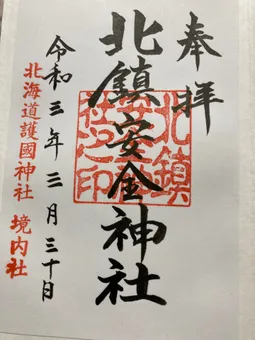 奉拝
北鎮安全神社
令和三年三月三十日
北海道護國神社 境内社